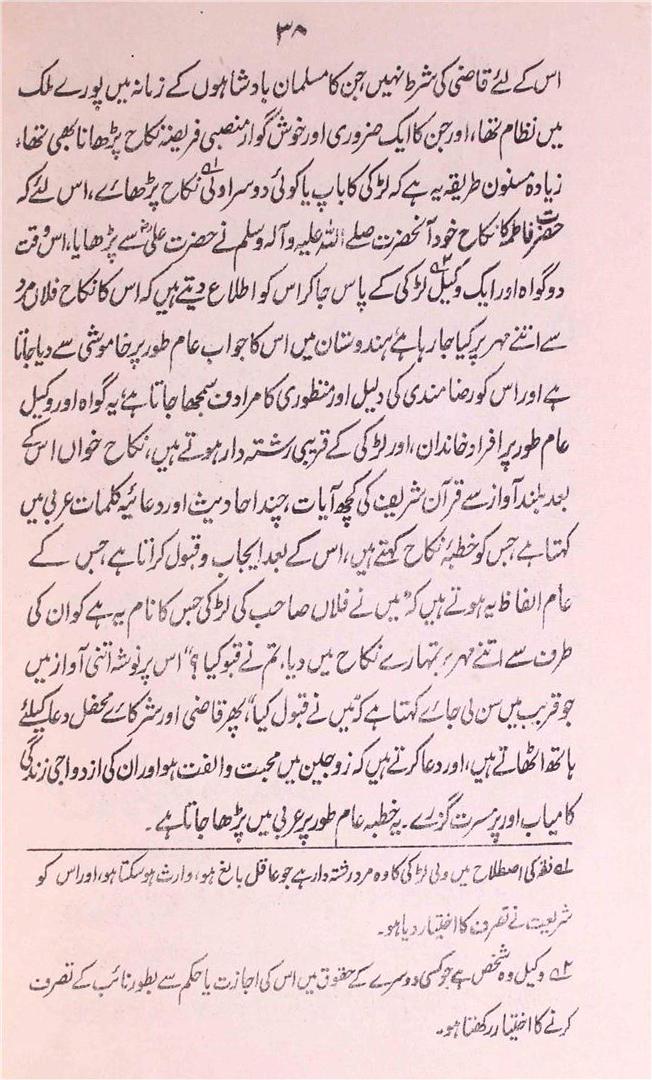 ۳۸
اس کے لئے قاضی کی شرط نہیں، جن کا مسلمان بادشاہوں کے زمانہ میں پورے ملک
میں نظام تھا، اور جن کا ایک ضروری اور خوش گوار منصبی فریضہ نکاح پڑھانا بھی تھا،
زیادہ مسنون طریقہ یہ ہے کہ لڑکی کا باپ یا کوئی دوسرا ولی ؎۱ نکاح پڑھائے، اس لئے کہ
حضرت فاطمہؓ کا نکاح خود آنحضرت صلے اللہ علیہ وآلہ وسلم نے حضرت علیؓ سے پڑھایا، اس وقت
دو گواہ اور ایک وکیل ؎۲ لڑکی کے پاس جا کر اس کو اطلاع دیتے ہیں کہ اس کا نکاح فلاں مرد
سے اتنے مہر پر کیا جا رہا ہے، ہندوستان میں اس کا جواب عام طور پر خاموشی سے دیا جاتا
ہے اور اس کو رضامندی کی دلیل اور منظوری کا مرادف سمجھا جاتا ہے، یہ گواہ اور وکیل
عام طور پر افراد خاندان، اور لڑکی کے قریبی رشتہ دار ہوتے ہیں، نکاح خواں اس کے
بعد بلند آواز سے قرآن شریف کی کچھ آیات، چند احادیث اور دعائیہ کلمات عربی میں
کہتا ہے جس کو خطبۂ نکاح کہتے ہیں، اس کے بعد ایجاب و قبول کراتا ہے جس کے
عام الفاظ یہ ہوتے ہیں کہ "میں نے فلاں صاحب کی لڑکی جس کا نام یہ ہے کو ان کی
طرف سے اتنے مہر پر تمہارے نکاح میں دیا، تم نے قبول کیا؟" اس پر نوشہ اتنی آواز میں
جو قریب میں سن لی جائے کہتا ہے کہ "میں نے قبول کیا"، پھر قاضی اور شرکائے محفل دعا کیلئے
ہاتھ اٹھاتے ہیں، اور دعا کرتے ہیں کہ زوجین میں محبت و الفت ہو اور ان کی ازدواجی زندگی
کامیاب اور پر مسرت گزرے۔ یہ خطبہ عام طور پر عربی میں پڑھا جاتا ہے۔
؎۱ فقہ کی اصطلاح میں ولی لڑکی کا وہ مرد رشتہ دار ہے جو عاقل بالغ ہو، وارث ہو سکتا ہو، اور اس کو
شریعت نے تصرف کا اختیار دیا ہو۔
؎۲ وکیل وہ شخص ہے جو کسی دوسرے کے حقوق میں اس کی اجازت یا حکم سے بطور نائب کے تصرف
کرنے کا اختیار رکھتا ہو۔